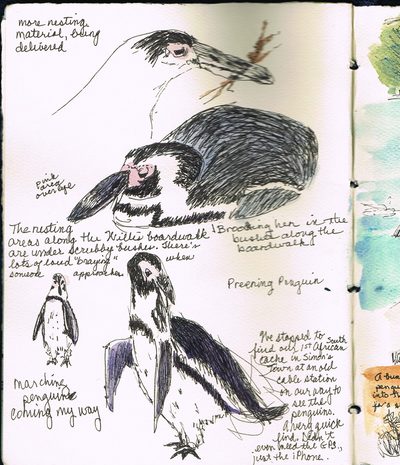 more nesting
material, being
delivered
pink
area
over eye
The nesting
areas along the Willis boardwalk
are under scrubby bushes. There's
lots of loud "braying" when
someone approaches.
Brooding hen in the
bushes along the
boardwalk
Preening Penguin
marching
penguin
coming my way
We stopped to
find our 1st South African
cache in Simon's
Town at an old
cable station
on our way to
see the
penguins.
A very quick
find. Didn't
even need the GPS,
just the iPhone.
A bun
pengu
into th